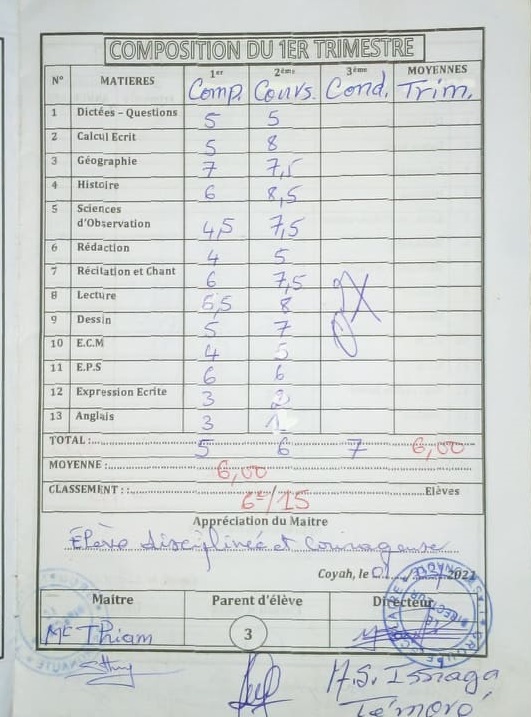 COMPOSITION DU 1ER TRIMESTRE
N° MATIERES 1er Comp. 2ème Cours. 3ème Cond. MOYENNES Trim.
1 Dictées – Questions 5 5
2 Calcul Ecrit 5 8
3 Géographie 7 7,5
4 Histoire 6 8,5
5 Sciences d'Observation 4,5 7,5
6 Rédaction 4 5
7 Récitation et Chant 6 7,5
8 Lecture 5,5 8
9 Dessin 5 7
10 E.C.M 4 5
11 E.P.S 6 6
12 Expression Ecrite 3 2
13 Anglais 3 1
TOTAL : 5 6 7 6,00
MOYENNE : 6,00
CLASSEMENT : : 6e/15 Elèves
Appréciation du Maitre
Élève disciplinée et Courageuse
Coyah, le 2021
Maitre Parent d'élève Directeur
Mr Thiam 3